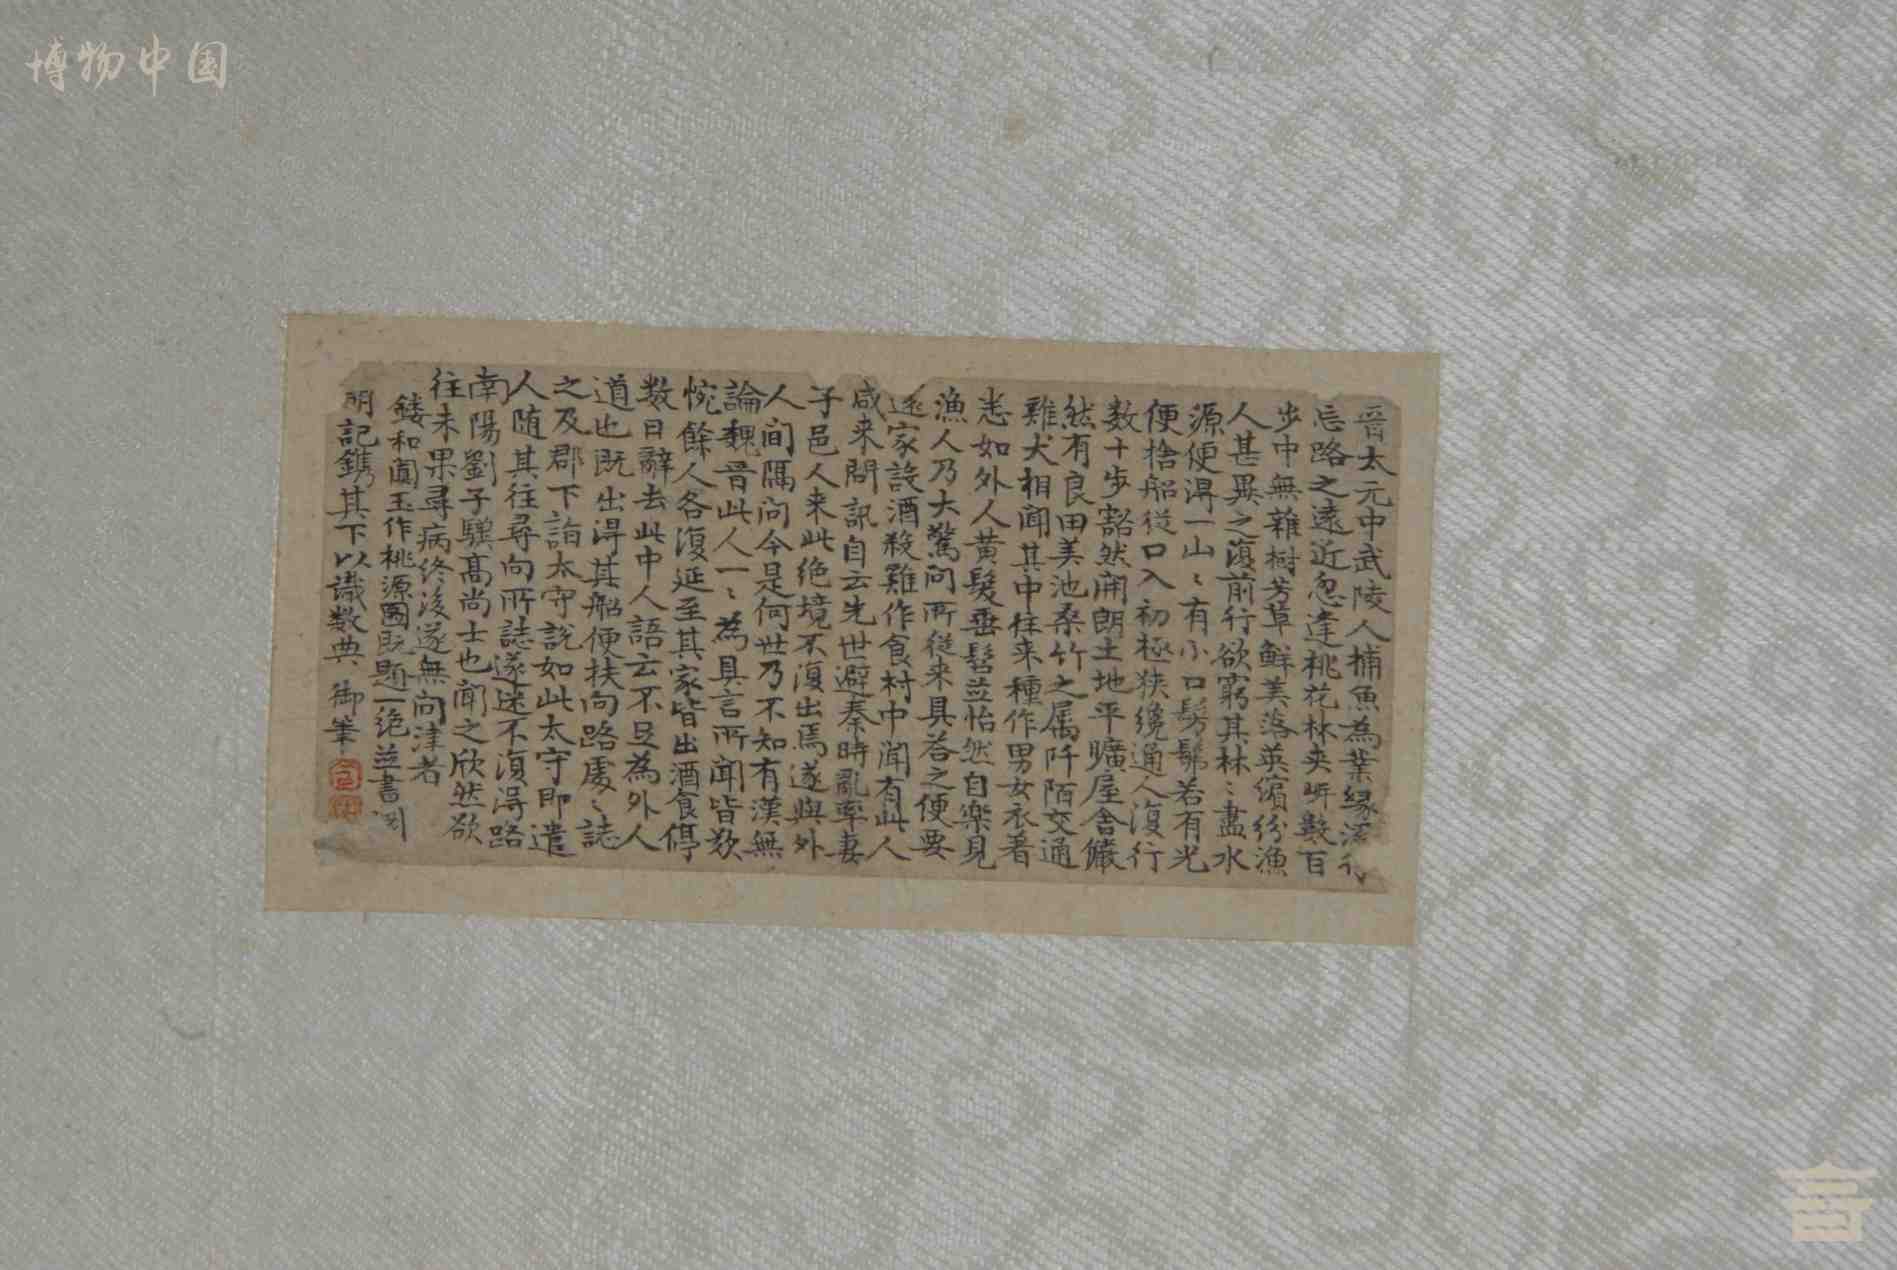 博物中国
晋太元中武陵人捕魚為業緣溪行
忘路之遠近忽逢桃花林夾岸數百
步中無雜樹芳草鮮美落英繽紛漁
人甚異之復前行欲窮其林〻盡水
源便得一山〻有小口髣髴若有光
便捨船從口入初極狹纔通人復行
数十步豁然開朗土地平曠屋舍儼
然有良田美池桑竹之属阡陌交通
雞犬相聞其中往来種作男女衣著
悉如外人黄髮垂髫並怡然自樂見
漁人乃大驚问所從来具荅之便要
還家設酒殺雞作食村中聞有此人
咸来問訊自云先世避秦時亂率妻
子邑人来此绝境不復出焉遂與外
人间隔问今是何世乃不知有漢無
論魏晋此人一〻為具言所聞皆歎
惋餘人各復延至其家皆出酒食停
数日辭去此中人語云不足為外人
道也既出得其船便扶向路處〻誌
之及郡下詣太守說如此太守即遣
人随其往尋向所誌遂迷不復得路
南陽劉子驥髙尚士也聞之欣然欲
往未果尋病终後遂無问津者
鏤和闐玉作桃源圖既題一绝並書淵
明記鐫其下以識数典 御筆